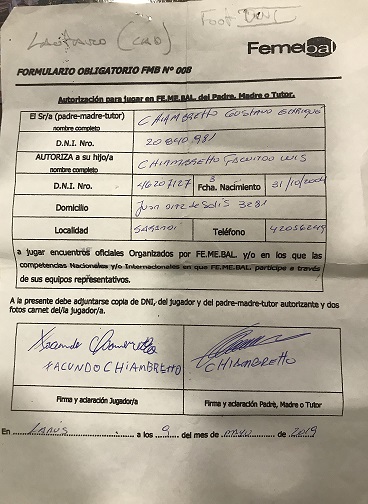 Lautaro (CAD)
Foot DNI
Femebal
FORMULARIO OBLIGATORIO FMB Nº 008
Autorización para jugar en FE.ME.BAL. del Padre, Madre o Tutor.
El Sr/a (padre-madre-tutor) CHIAMBRETTO GUSTAVO ENRIQUE
nombre completo
D.N.I. Nro. 20840981
AUTORIZA a su hijo/a CHIAMBRETTO FACUNDO LUIS
nombre completo
D.N.I. Nro. 46207127 Fcha. Nacimiento 31/10/2004
Domicilio Juan DIAZ de Solis 3281
Localidad SARANDI Teléfono 42056249
a jugar encuentros oficiales Organizados por FE.ME.BAL. y/o en los que las
competencias Nacionales y/o Internacionales en que FE.ME.BAL. participe a través
de sus equipos representativos.
A la presente debe adjuntarse copia de DNI, del jugador y del padre-madre-tutor autorizante y dos
fotos carnet del/la jugador/a.
FACUNDO CHIAMBRETTO CHIAMBRETTO
Firma y aclaración Jugador/a Firma y aclaración Padre, Madre o Tutor
En LANUS a los 9 del mes de MAYO de 2019